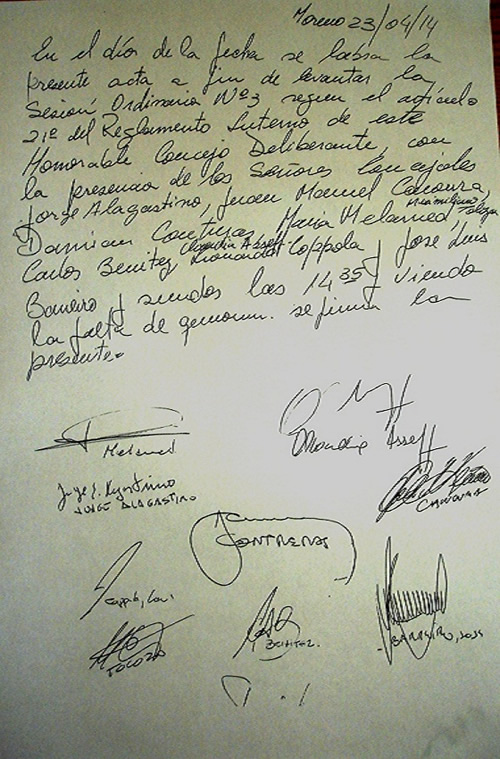 Moreno 23/04/14
En el días de la fecha se labra la
presente acta a fin de levantar la
Sesión Ordinaria Nº3 segun el artículo
21º del Reglamento Interno de este
Honorable Concejo Deliberante, con
la presencia de los Señores Concejales
Jorge Alagastino, Juan Manuel Canoura,
Damian Contreras, Maria Melamed, Maximiliano
Carlos Benitez, Claudia Asseff, Leonardo Coppola y José Luis
Barreiro y siendo las 14 35 y viendo
la falta de quorum. se firma la
presente.
Melamed
Claudia Asseff
JORGE ALAGASTINO
CANOURA
CONTRERAS
Coppola, Leo.
TOLOZA
BENITEZ.
BARREIRO, JOSE